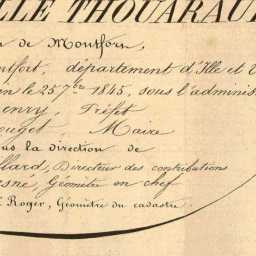 LLE THOUARAUL
n de Montforn,
ntfort, département d'Ille et V
en le 25 7bre 1845, sous l'adminis
enry, Préfet
ouget, Maire
us la direction de
llard, Directeur des contributions
esné, Géomètre en chef
Roger, Géomètre du cadastre